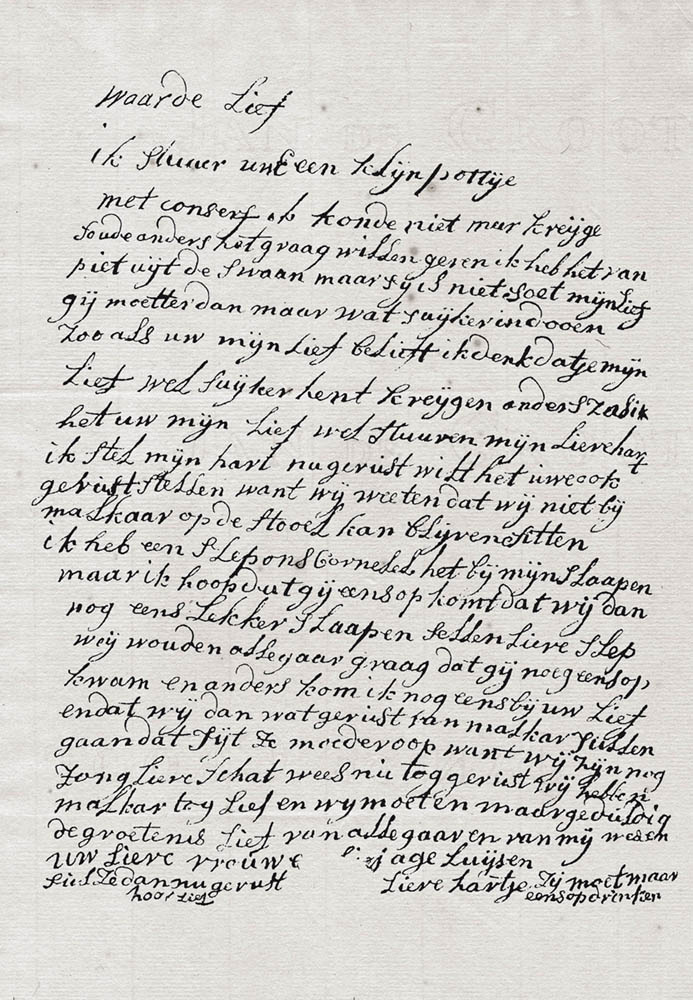 waarde Lief
ik stuuer uwE een klijn pottje
met conserf ik konde niet mur kreijge
soude anders het graag willen geven ik heb het van
piet uijt de swaan maar sij is niet soet mijn lief
gij moetter dan maar wat suijker in dooen
zoo alls uw mijn Lief belieft ik denk datje mijn
Lief wel suijker kent kreijgen anders zal ik
het uw mijn Lief wel stuuren mijn Lieve hart
ik stel mijn hart nu gerust willt het uwe ook
gerust stellen want wij weeten dat wij niet bij
malkaar op de stoel kan blijven sitten
ik heb een slep ons Cornelel het bij mijn slaapen
maar ik hoop dat gij eens op komt dat wij dan
nog eens Lekker slaapen sellen Lieve slep
weij wouden allegaar graag dat gij noeg eens op
kwam en anders kom ik nog eens bij uw Lief
en dat wij dan wat gerust van malkar sullen
gaan dat sijt ze moeder oop want wij zijn nog
Zong Lieve schat wees nu tog gerust wij hebben
malkar tog Lief en wy moeten maar geduldig
de groetenis Lief van allegaar en van mij wesen
uw Lieve vrouwe aage Luijsen
siel Ze dan nu gerust Lieve hartje Zij moet maar
hoor Lief eens op drinken